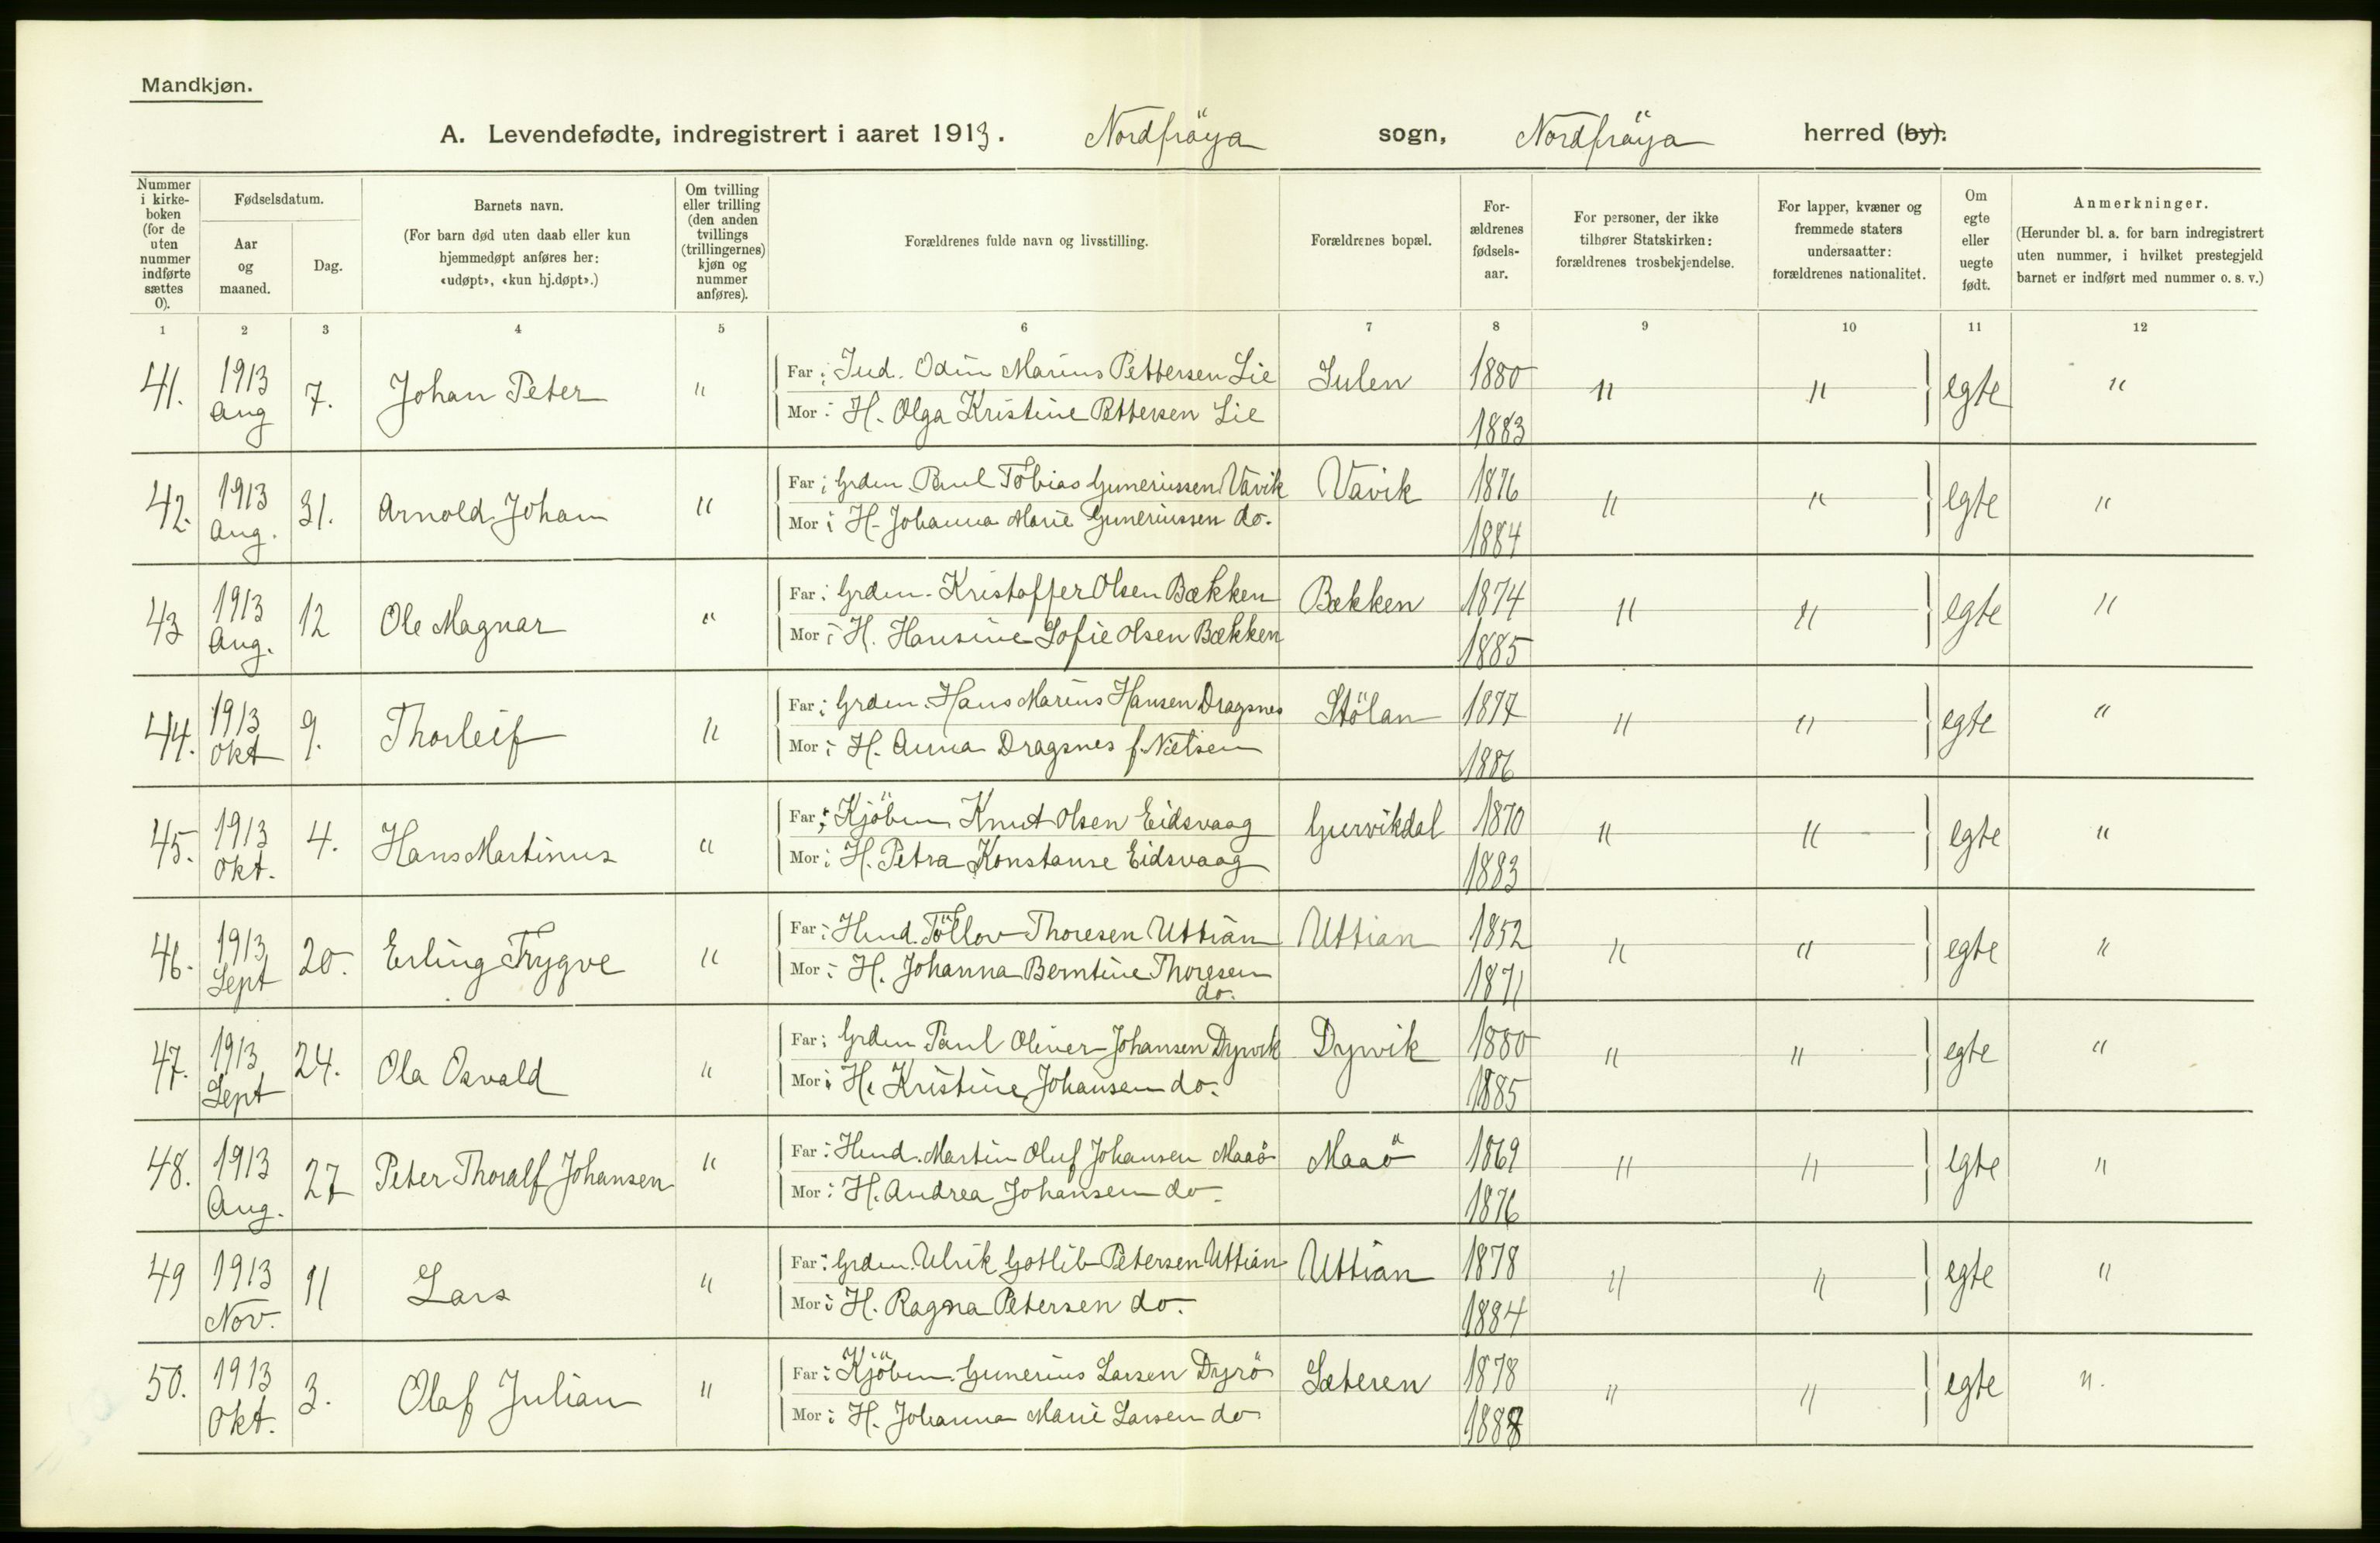 Mandkjøn.
A. Levendefødte, indregistrert i aaret 1913. Nordfröya sogn, Nordfröya herred (by).
Nummer i kirke-boken (for de uten nummer indførte sættes 0).
Fødselsdatum.
Aar og maaned.
Dag.
Barnets navn.
(For barn død uten daab eller kun hjemmedøpt anføres her: «udøpt», «kun hj.døpt».)
Om tvilling eller trilling (den anden tvillings (trillingernes) kjøn og nummer anføres).
Forældrenes fulde navn og livsstilling.
Forældrenes bopæl.
For-ældrenes fødsels-aar.
For personer, der ikke tilhører Statskirken: forældrenes trosbekjendelse.
For lapper, kvæner og fremmede staters undersaatter: forældrenes nationalitet.
Om egte eller uegte født.
Anmerkninger.
(Herunder bl. a. for barn indregistrert uten nummer, i hvilket prestegjeld barnet er indført med nummer o. s. v.)
1 2 3 4 5 6 7 8 9 10 11 12
41. 1913 Aug 7. Johan Peter " Far: Ind. Odin Marius Pettersen Lie Sulen 1880 " " egte "
Mor: H. Olga Kristine Pettersen Lie 1883
42. 1913 Aug. 31. Arnold Johan " Far: Grdm. Paul Tobias Guneriussen Vavik Vavik 1876 " " egte "
Mor: H. Johanna Marie Guneriussen do. 1884
43 1913 Aug. 12 Ole Magnar " Far: Grdm. Kristoffer Olsen Bækken Bækken 1874 " " egte "
Mor: H. Hansine Sofie Olsen Bækken 1885
44. 1913 Okt 9. Thorleif " Far: Grdm. Hans Marius Hansen Dragsnes Stölan 1877 " " egte "
Mor: H. Anna Dragsnes f. Nielsen 1886
45. 1913 Okt. 4. Hans Martinus " Far: Kjöbm. Knut Olsen Eidsvaag Gurvikdal 1870 " " egte "
Mor: H. Petra Konstanse Eidsvaag 1883
46. 1913 Sept 20. Erling Trygve " Far: Hmd. Töllov Thoresen Uttian Uttian 1852 " " egte "
Mor: H. Johanna Berntine Thoresen do. 1871
47. 1913 Sept 24. Ola Osvald " Far: Grdm Paul Oliver Johansen Dyrvik Dyrvik 1880 " " egte "
Mor: H. Kristine Johansen do. 1885
48. 1913 Aug. 27 Peter Thoralf Johansen " Far: Hmd. Martin Oluf Johansen Maaö Maaö 1869 " " egte "
Mor: H. Andrea Johansen do. 1876
49 1913 Nov. 11 Lars " Far: Grdm. Ulrik Gotlib Petersen Uttian Uttian 1878 " " egte "
Mor: H. Ragna Petersen do. 1884
50. 1913 Okt. 3. Olaf Julian " Far: Kjöbm. Gunerius Larsen Dyrö Sæteren 1878 " " egte ".
Mor: H. Johanna Marie Larsen do 1888